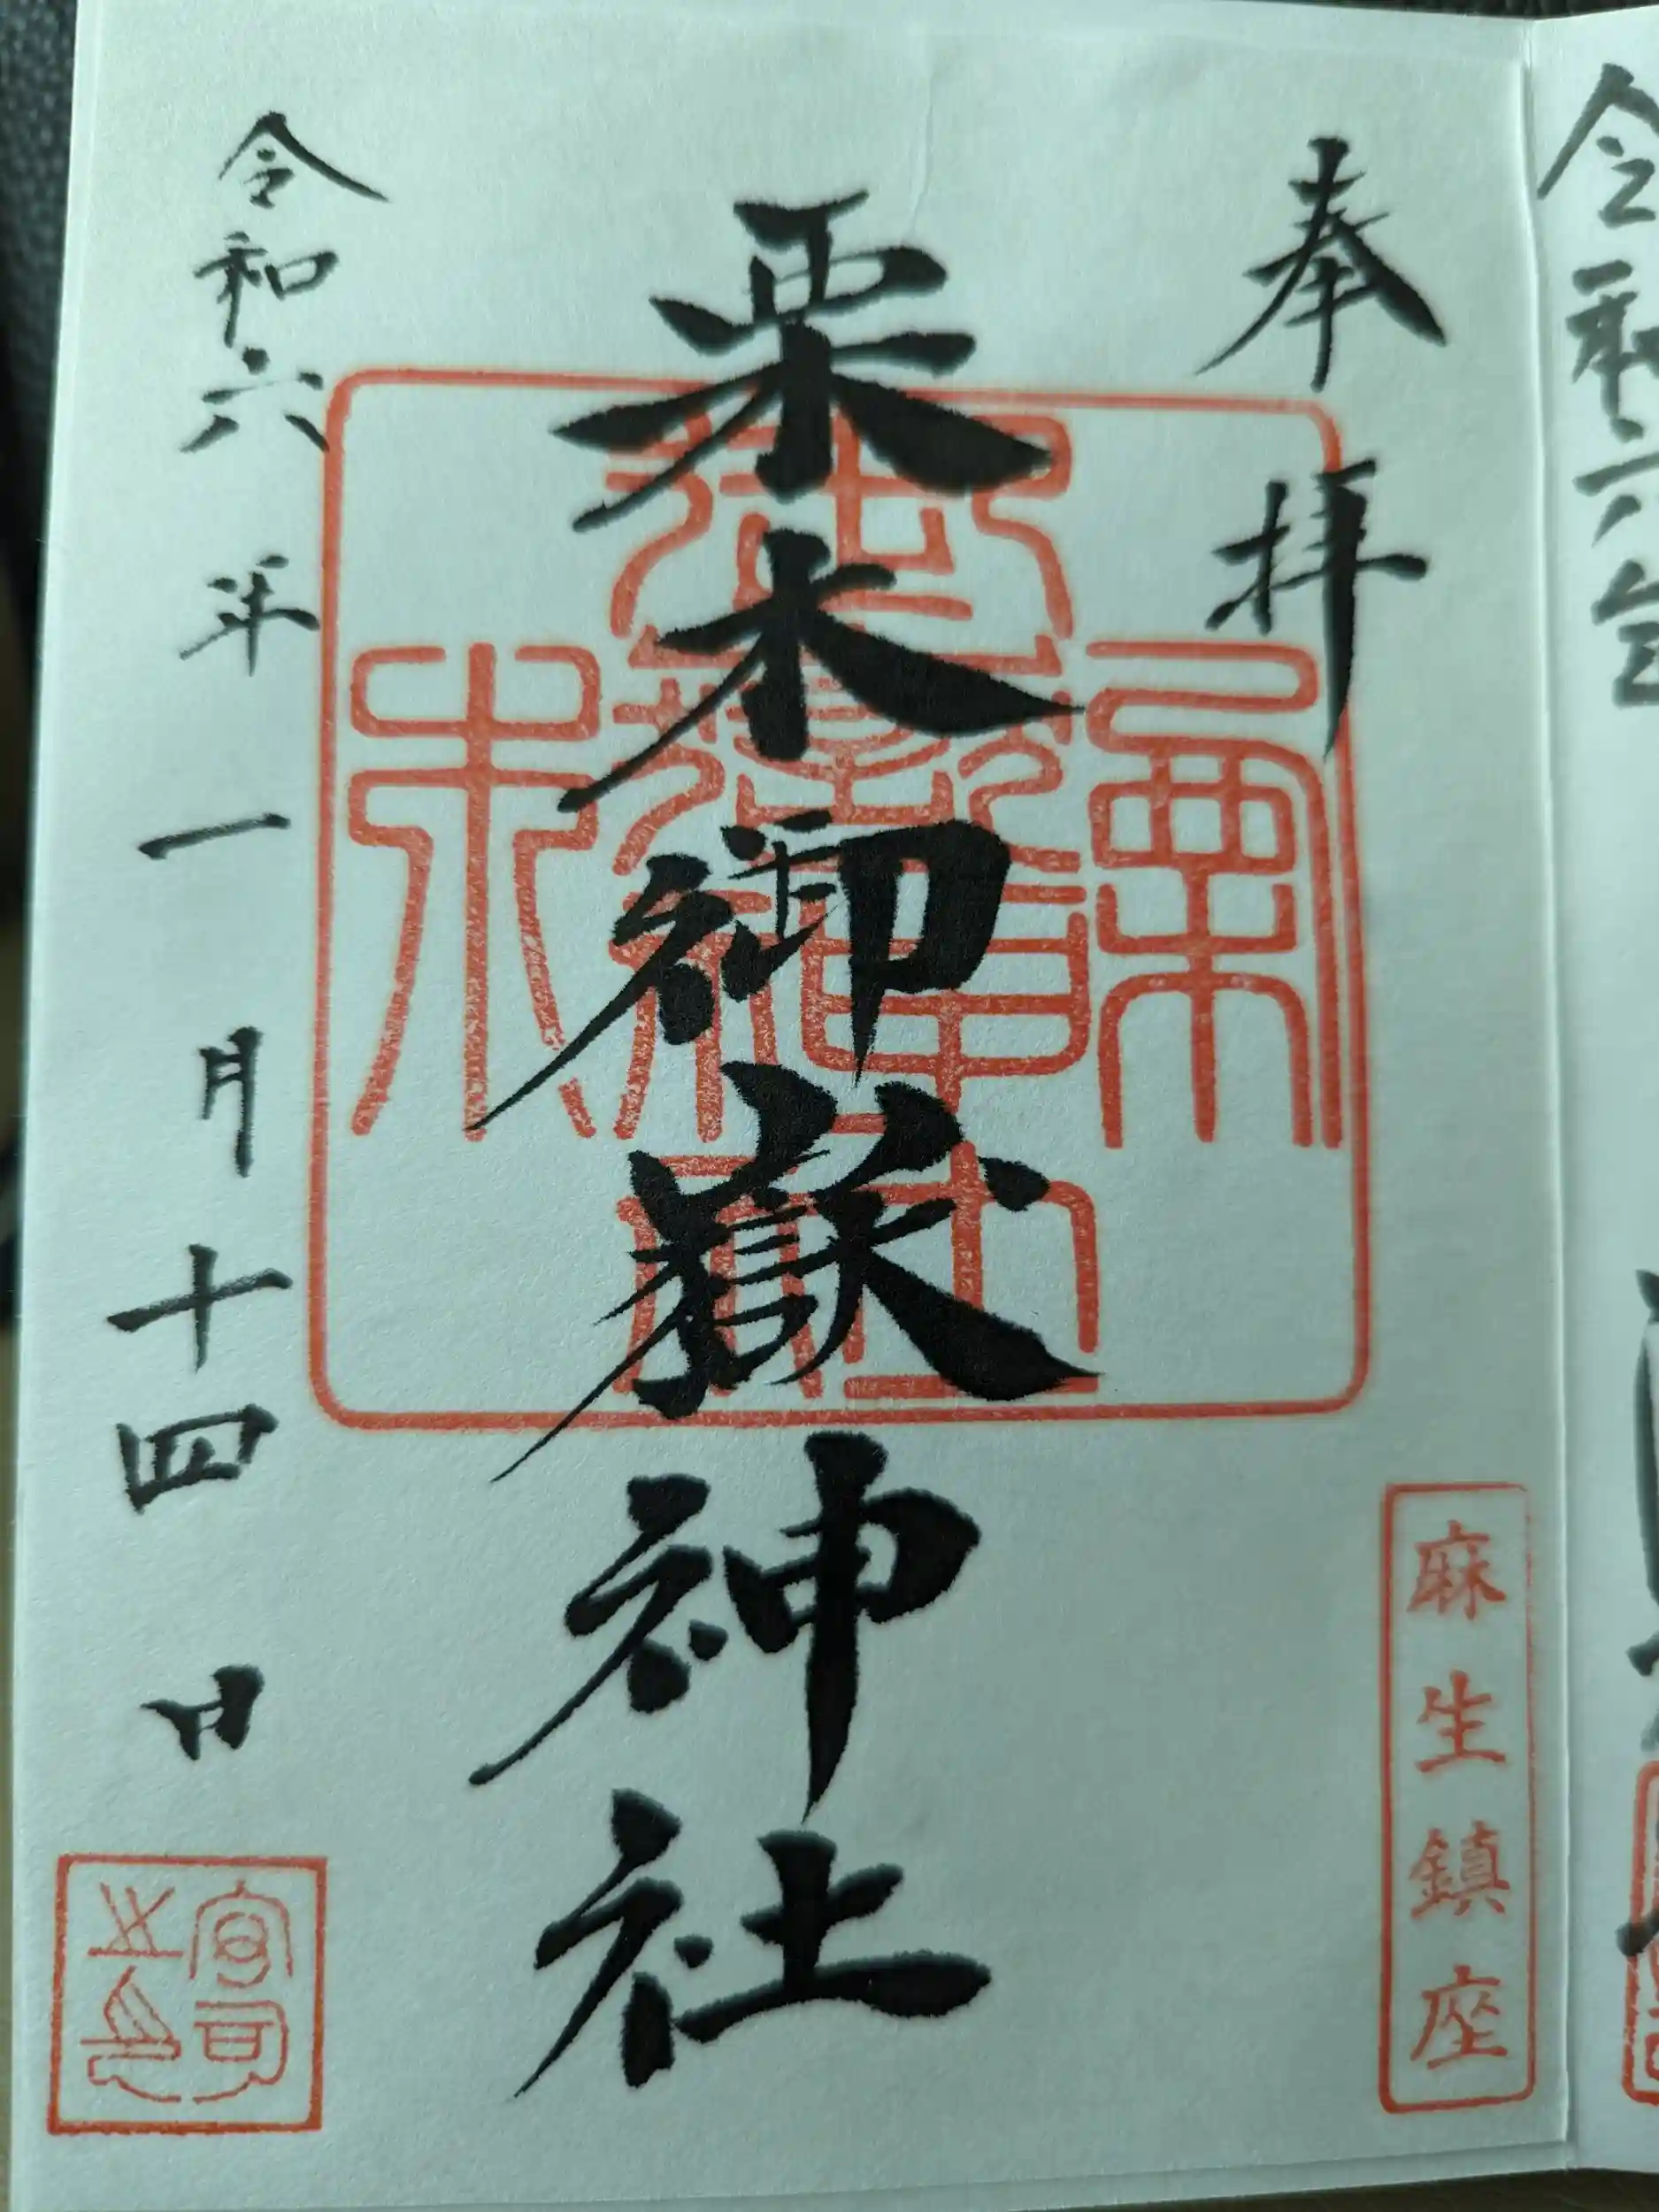 奉拝
栗木御嶽神社
令和六年一月十四日
麻生鎮座
宮司之印
令和六年